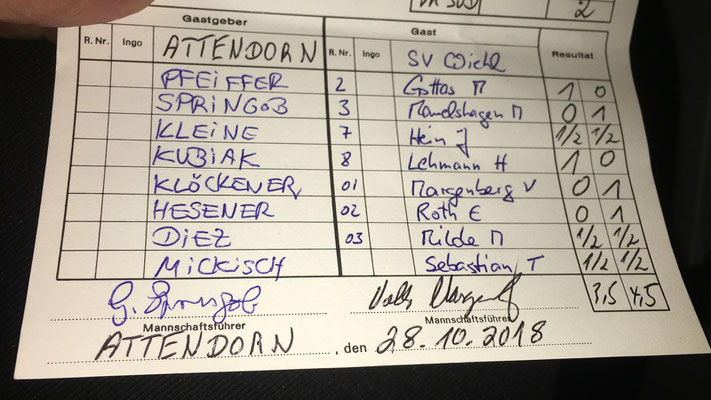 VR SÜD 2
Gastgeber Gast
R. Nr. Ingo ATTENDORN R. Nr. Ingo SV Wiehl Resultat
PFEIFFER 2 Gottas M 1 0
SPRINGOB 3 Mandelshagen M 0 1
KLEINE 7 Hein J 1/2 1/2
KUBIAK 8 Lehmann H 1 0
KLÖCKENER 01 Margenberg V 0 1
HESENER 02 Roth E 0 1
DIEZ 03 Milde M 1/2 1/2
MICKISCH Sebastian, T 1/2 1/2
G. Springob 3,5 4,5
Mannschaftsführer Mannschaftsführer
ATTENDORN , den 28.10.2018